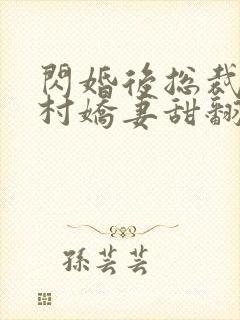 閃婚後總裁
村嬌妻甜翻
孫芸芸